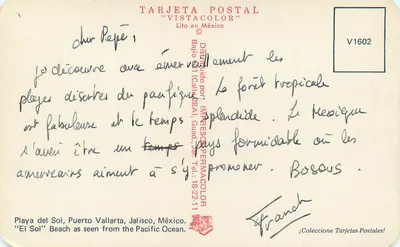 TARJETA POSTAL
"VISTACOLOR"
Lito en México
©
V1602
cher Pepé,
je découvre avec émerveillement les
plages discrètes du pacifique. La forêt tropicale
est fabuleuse et le temps splendide. Le Mexique
s'avère être un temps pays formidable où les
americains aiment à s'y promener. BISOUS
Franck
Distribuido por: IMPRESOS PERMACOLOR
Playa del Sol, Puerto Vallarta, Jalisco, México.
"El Sol" Beach as seen from the Pacific Ocean.
¡Coleccione Tarjetas Postales!